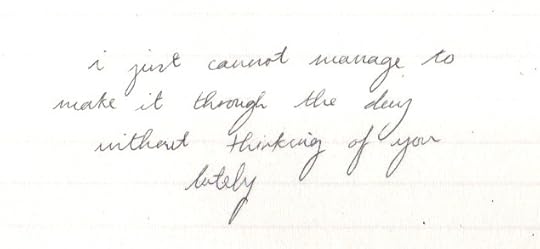 i just cannot manage to
make it through the day
without thinking of you
lately